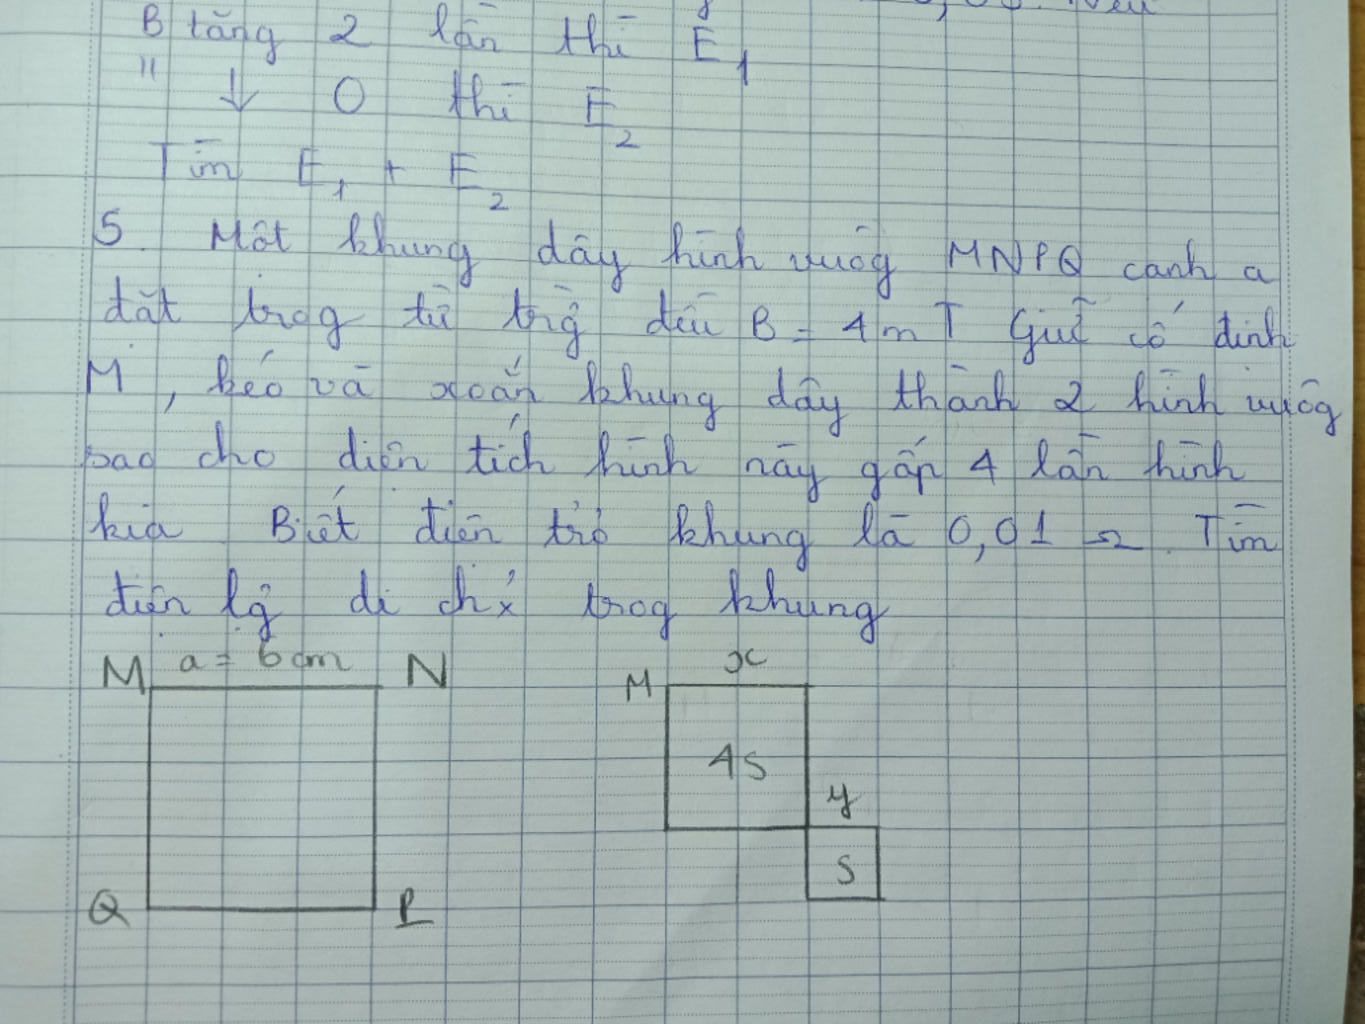 B tăng 2 lần thì E₁
" ↓ 0 thì E₂
Tìm E₁ + E₂
5. Một khung dây hình vuôg MNPQ cạnh a
đặt trog từ trg đều B = 4 m T Giữ cố định
M, kéo và xoắn khung dây thành 2 hình vuôg
sao cho diện tích hình này gấp 4 lần hình
kia Biết điện trở khung là 0,01 Ω. Tìm
điện lg di ch' trog khung
M a = 6 cm N
M x
4S
y
S
Q P